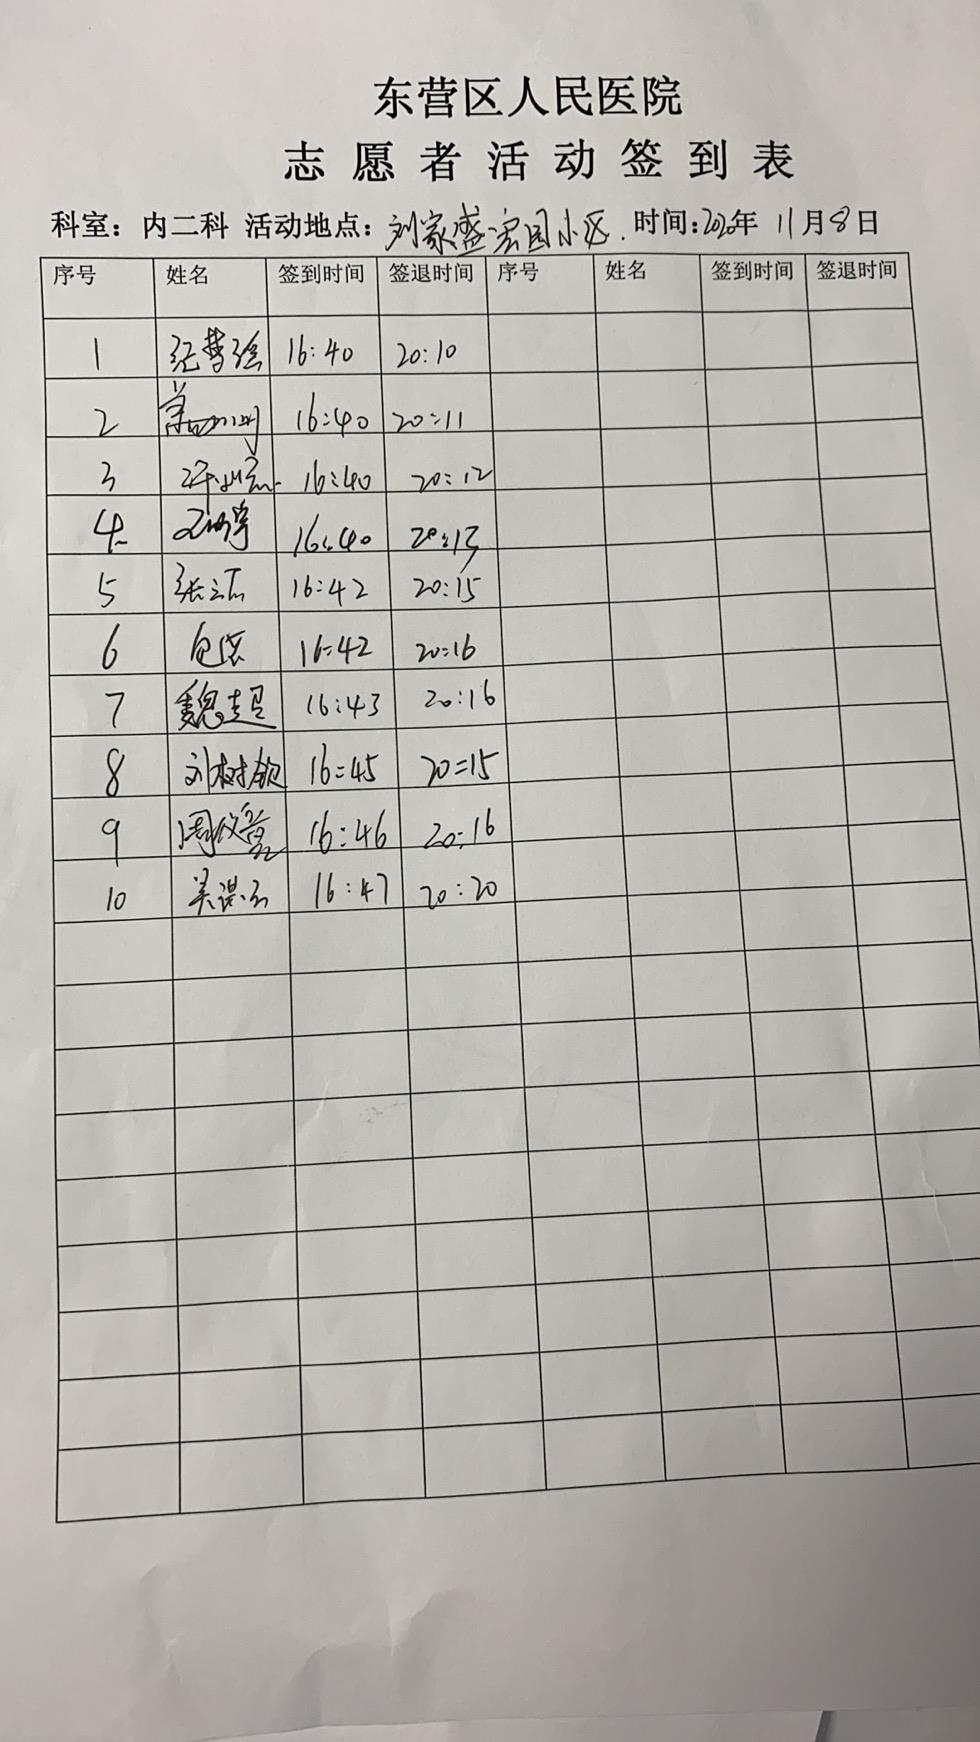 东营区人民医院
志愿者活动签到表
科室：内二科 活动地点：刘家盛宏园小区. 时间：2020年 11月8日
序号 姓名 签到时间 签退时间 序号 姓名 签到时间 签退时间
1 16:40 20:10
2 16:40 20:11
3 16:40 20:12
4 16:40 20:13
5 张 16:42 20:15
6 16:42 20:16
7 魏超 16:43 20:16
8 刘树钦 16:45 20:15
9 周 16:46 20:16
10 吴 16:47 20:20